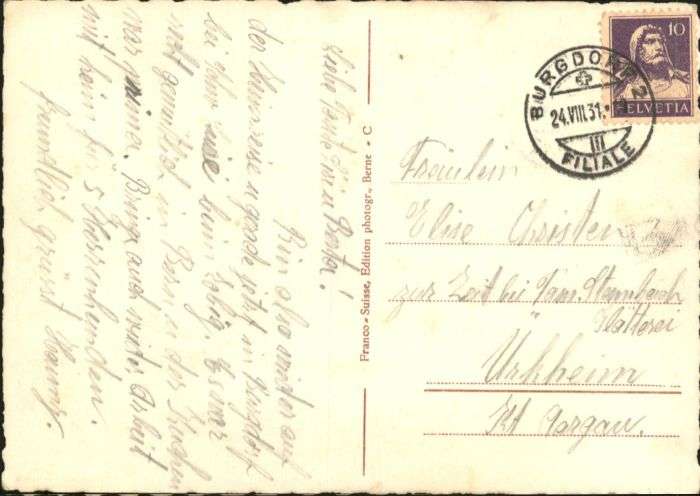 Liebe Tante Lisi u Bester!
Bin also wieder auf
der Heimreise u gerade jetzt in Burgdorf
bei chum Lobig. Es war
nett gemütlich in Bern u der Stockhorn
war prima. Bringe auch wieder Arbeit
mit heim für 5 Herrenhemden.
freundlich grüsst Hanny.
Franco-Suisse, Edition photogr., Berne - C
10
HELVETIA
BURGDORF 2
24.VIII.31.
III
FILIALE
Fräulein
Elise Christen
zur Zeit bei Fam. Stammbach
Uerkheim
Kt Aargau.